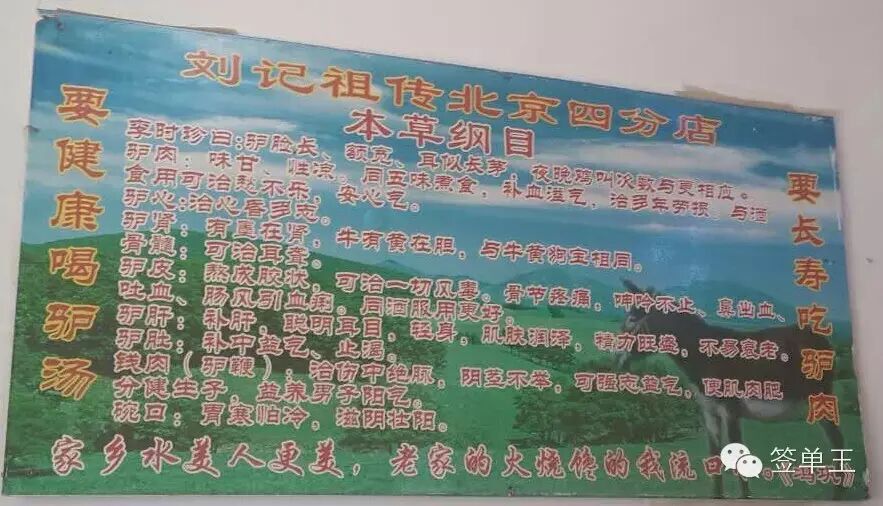 刘记祖传北京四分店
本草纲目
要健康喝驴汤
李时珍曰:驴脸长、额宽、耳似长茅,夜晚鸡叫次数与更相应。
驴肉:味甘、性凉。同五味煮食,补血溢气,治多年劳损。与酒
食用可治愁不乐,安心气。
驴心:治心昏多忘。
驴肾:有墨在肾,牛有黄在胆,与牛黄狗宝相同。
骨髓:可治耳聋。
驴皮:熬成胶状,可治一切风毒。骨节疼痛,呻吟不止、鼻出血、
吐血、肠风引血痢。同酒服用更好。
驴肝:补肝,聪明耳目,轻身,肌肤润泽,精力旺盛,不易衰老。
驴肚:补中益气,止渴。
钱肉(驴鞭):治伤中绝脉,阴茎不举,可强志益气,使肌肉肥
分健生子,益养男子阳气。
忱口:胃寒怕冷,滋阴壮阳。
要长寿吃驴肉
家乡水美人更美,老家的火烧馋的我流口
签单王